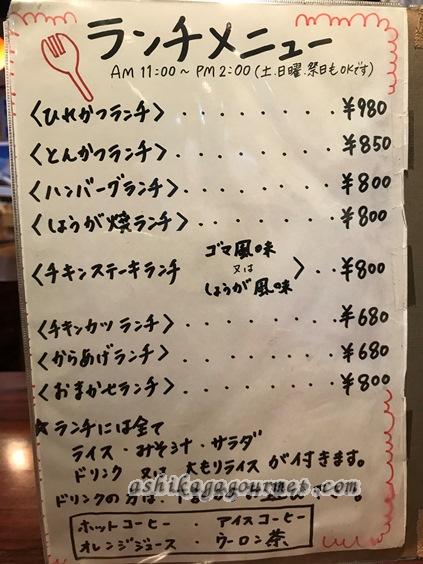 ランチメニュー
AM 11:00～PM 2:00(土.日曜.祭日もOKです)
〈ひれかつランチ〉.......¥980
〈とんかつランチ〉.......¥850
〈ハンバーグランチ〉.......¥800
〈しょうが焼ランチ〉.......¥800
ゴマ風味
〈チキンステーキランチ 又は 〉...¥800
しょうが風味
〈チキンカツランチ〉.......¥680
〈からあげランチ〉.......¥680
〈おまかせランチ〉.......¥800
☆ランチには全て
ライス・みそ汁・サラダ
ドリンク 又は 大もりライス が付きます。
ashikagagourmet.com
ドリンクの方は、下
ホットコーヒー ・ アイスコーヒー
オレンジジュース ・ ウーロン茶